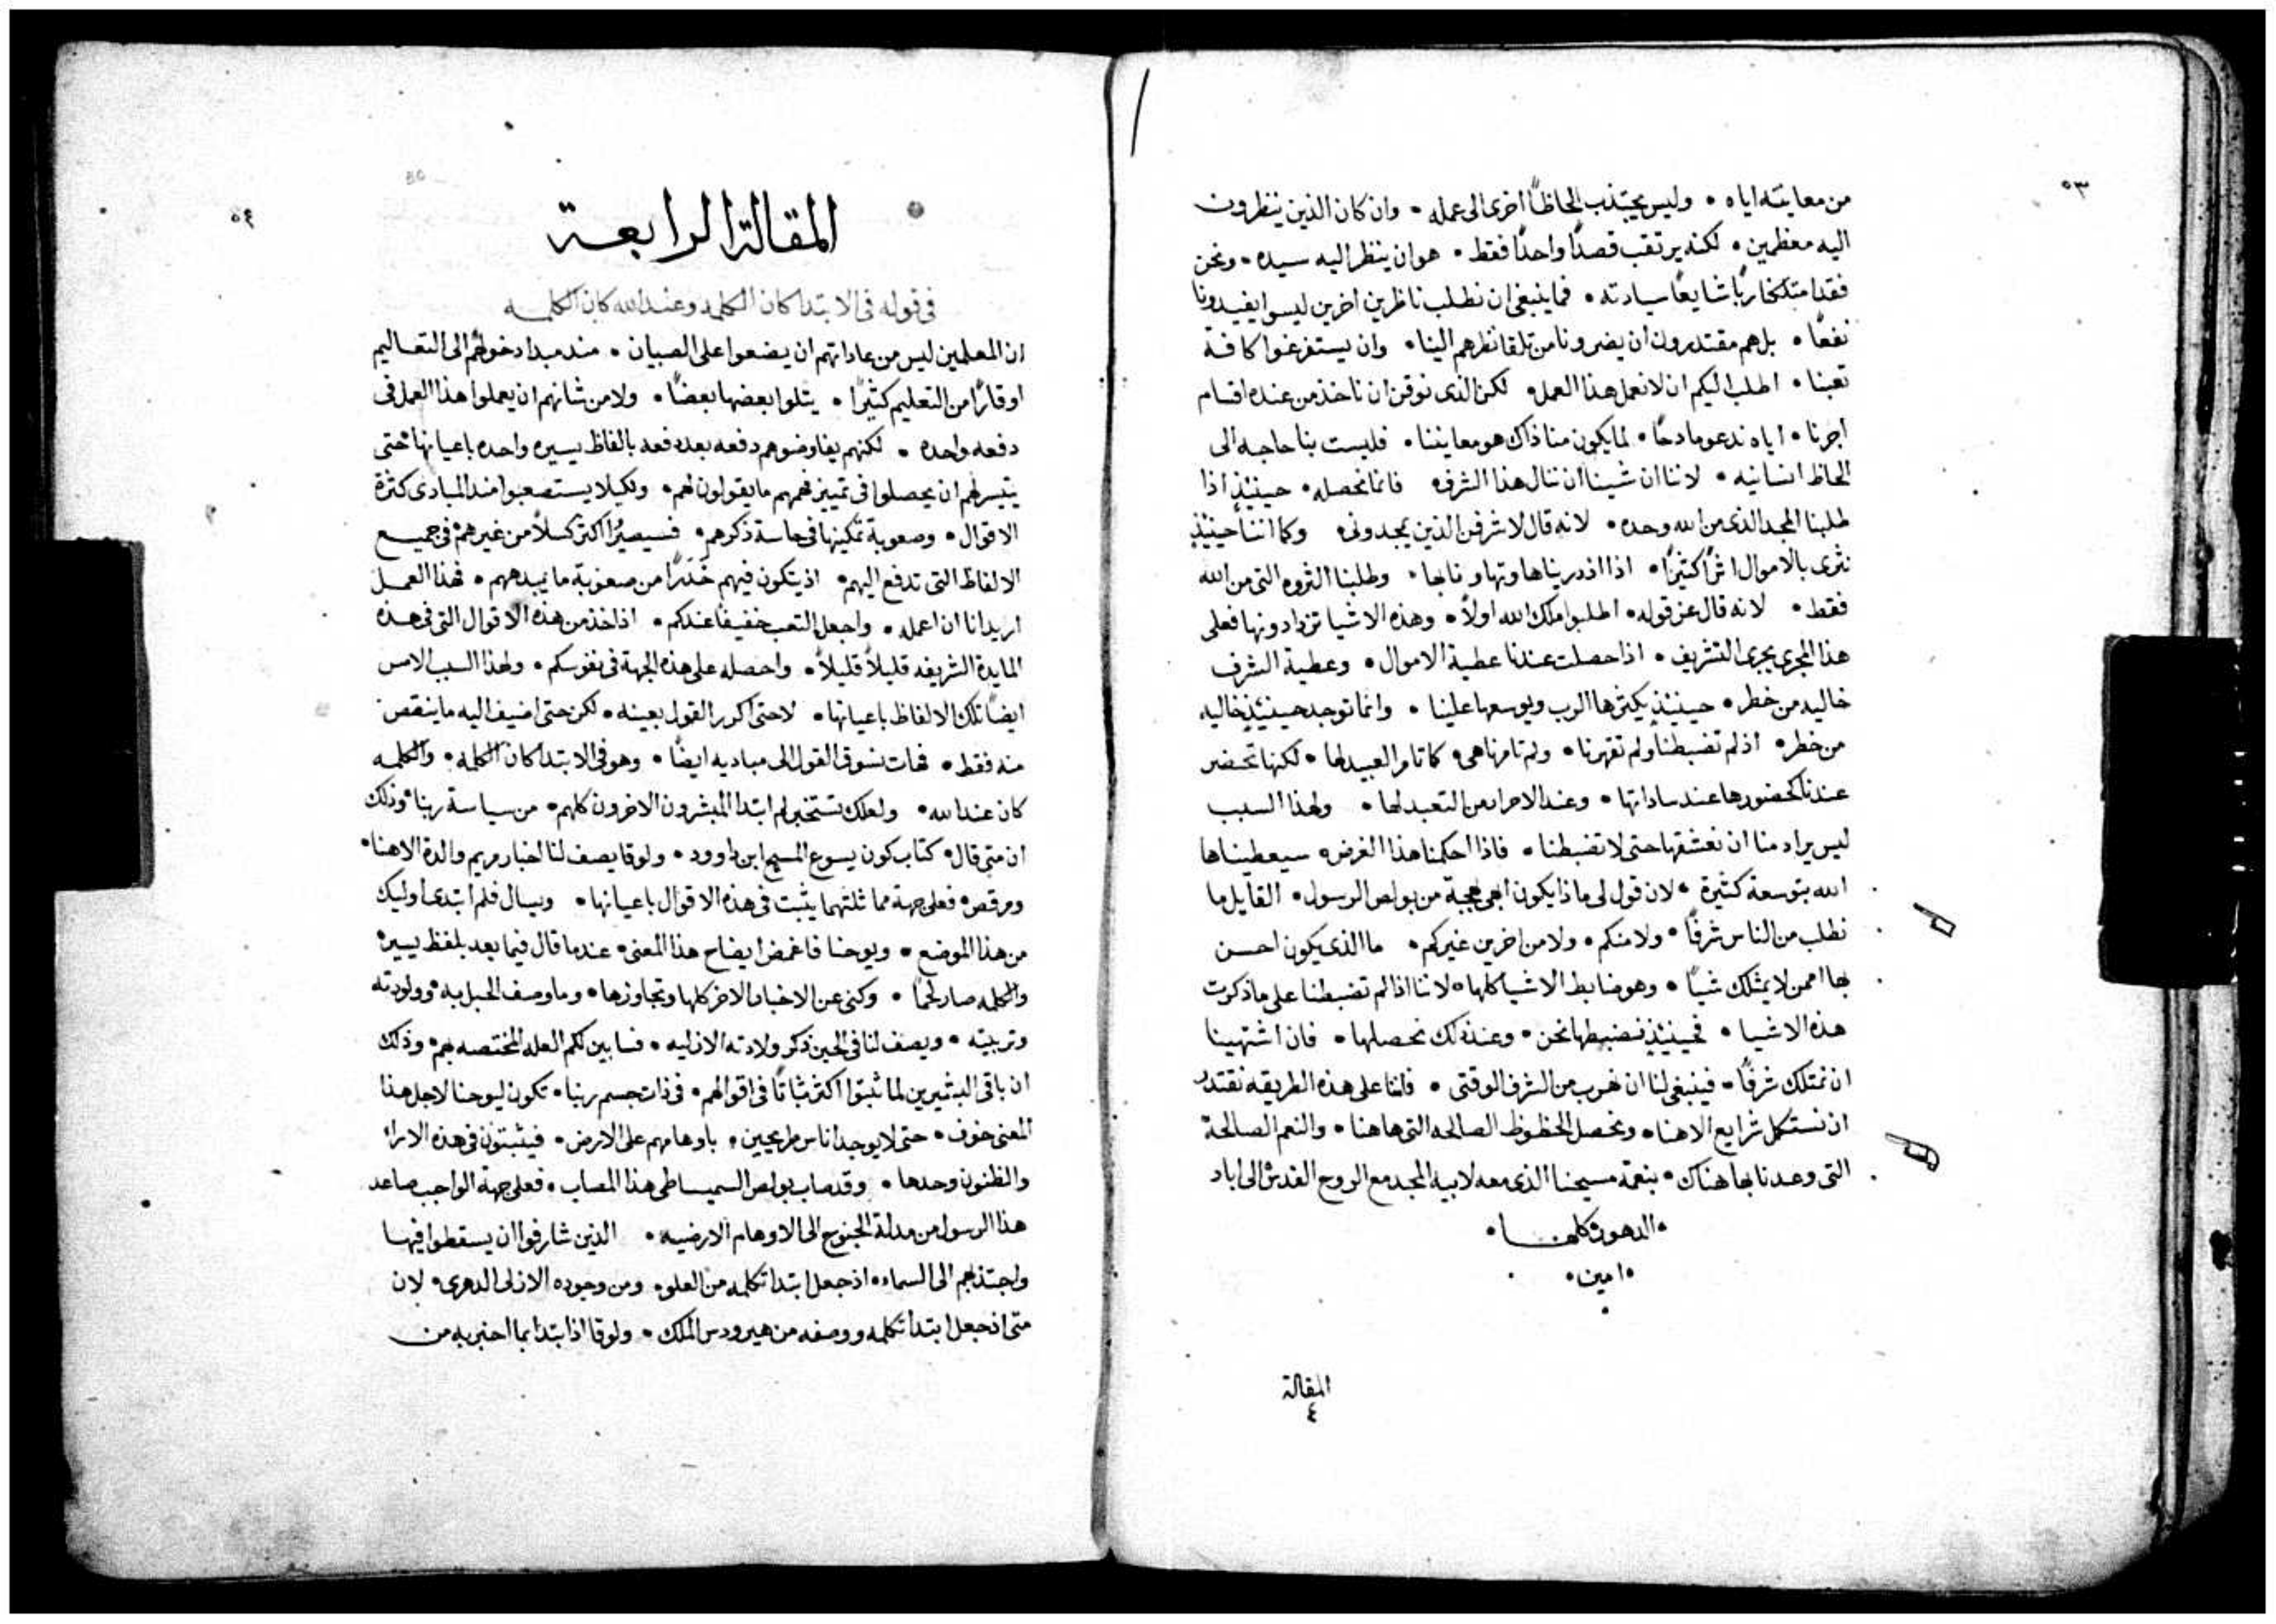 ٥٣
من معاينته اياه • وليس يجتذب الحاظًا اخرى الى عمله • وان كان الذين ينظرون
اليه معظمين • لكنه يرتقب قصدًا واحدًا فقط • هو ان ينظر اليه سيده • ونحن
فقد امتلكنا ربًا شايعًا سيادته • فما ينبغي ان نطلب ناظرين اخرين ليسوا يفيدونا
نفعًا • بل هم مقتدرون ان يضرونا من تلقا نظرهم الينا • وان يستفرغوا كافة
تعبنا • اطلب اليكم ان لا نعمل هذا العمل • لكن الذي نوقن ان ناخذ من عنده اقسام
اجرنا • اياه ندعو مادحًا • لما يكون منا ذاك هو معايننا • فليست بنا حاجه الى
الحاظ انسانيه • لاننا ان شينا ان ننال هذا الشرف • فانما نحصله • حينيذٍ اذا
طلبنا المجد الذي من الله وحده • لانه قال لاشرفن الذين يمجدوني • وكما اننا حينيذٍ
نثرى بالاموال اثرًا كثيرًا • اذا ازدريناها وتهاونا بها • وطلبنا الثروه التي من الله
فقط • لانه قال عز قوله • اطلبوا ملك الله اولاً • وهذه الاشيا تزدادونها فعلى
هذا المجرى يجري التشريف • اذا حصلت عندنا عطية الاموال • وعطية الشرف
خاليه من خطر • حينيذٍ يكثرها الرب ويوسعها علينا • وانما توجد حينيذٍ خاليه
من خطر • اذ لم تضبطنا ولم تقهرنا • ولم تامرنا هي • كما تامر العبيد لها • لكنها تحضر
عندنا كحضورها عند ساداتها • وعند الاحرار من التعبد لها • ولهذا السبب
ليس يراد منا ان نعشقها حتى لا تضبطنا • فاذا احكمنا هذا الغرض • سيعطيناها
الله بتوسعة كثيرة • لان قول لي ماذا يكون ابهى بهجة من بولص الرسول • القايل ما
نطلب من الناس شرفًا • ولا منكم • ولا من اخرين غيركم • ما الذي يكون احسن
بها ممن لا يمتلك شيًا • وهو ضابط الاشيا كلها • لاننا اذا لم تضبطنا على ما ذكرت
هذه الاشيا • فحينيذٍ نضبطها نحن • وعند ذلك نحصلها • فان اشتهينا
ان نمتلك شرفًا • فينبغي لنا ان نهرب من الشرف الوقتي • فاننا على هذه الطريقه نقتدر
ان نستكمل شرايع الاهنا • ونحصل الحظوظ الصالحه التي هاهنا • والنعم الصالحة
التي وعدنا بها هناك • بنعمة مسيحنا الذي معه لابيه المجد مع الروح القدس الى اباد
• الدهور كلها •
• امين •
المقالة
٤
٥٤
المقالة الرابعة
في قوله في الابتدا كان الكلمه وعند الله كان الكلمه
ان المعلمين ليس من عاداتهم ان يضعوا على الصبيان • منذ مبدا دخولهم الى التعاليم
اوقارًا من التعليم كثيرًا • يتلوا بعضها بعضًا • ولا من شانهم ان يعملوا هذا العمل في
دفعه واحده • لكنهم يفاوضوهم دفعه بعد دفعه بالفاظ يسيره واحده باعيانها حتى
يتيسر لهم ان يحصلوا في تمييز فهمهم ما يقولون لهم • ولكيلا يستصعبوا منذ المبادي كثرة
الاقوال • وصعوبة تمكينها في حاسة ذكرهم • فسيصيروا اكثر كسلاً من غيرهم في جميع
الالفاظ التي تدفع اليهم • اذ يتكون فيهم خَدَرًا من صعوبة ما يبدههم • فهذا العمل
اريد انا ان اعمله • واجعل التعب خفيفًا عندكم • اذ اخذ من هذه الاقوال التي في هذه
المايدة الشريفه قليلاً قليلاً • واحصله على هذه الجهة في نفوسكم • ولهذا السبب الامس
ايضًا تلك الالفاظ باعيانها • لا حتى اكرر القول بعينه • لكن حتى اضيف اليه ما ينقص
منه فقط • فهات نسوق القول الى مباديه ايضًا • وهو في الابتدا كان الكلمه • والكلمه
كان عند الله • ولعلك تستخبر لم ابتدا المبشرون الاخرون كلهم • من سياسة ربنا • وذلك
ان متى قال • كتاب كون يسوع المسيح ابن داوود • ولوقا يصف لنا اخبار مريم والدة الاهنا •
ومرقص • فعلى جهة مماثلتهما يثبت في هذه الاقوال باعيانها • ويسال فلم ابتدى اوليك
من هذا الموضع • ويوحنا فاغمض ايضاح هذا المعنى • عندما قال فيما بعد بلفظ يسير •
والكلمه صار لحمًا • وكنى عن الاخبار الاخر كلها وتجاوزها • وما وصف الحبل به • وولودته
وتربيته • ويصف لنا في الحين ذكر ولادته الازليه • فسابين لكم العله المختصه بهم • وذلك
ان باقي البشيرين لما ثبتوا اكثر ثباتًا في اقوالهم • في ذات جسم ربنا • تكون ليوحنا لاجل هذا
المعنى خوف • حتى لا يوجد اناس مريحين • باوهامهم على الارض • فيثبتون في هذه الارا
والظنون وحدها • وقد صاب بولص السميساطي هذا المصاب • فعلى جهة الواجب صاعد
هذا الرسول من مذلة الجنوح الى الاوهام الارضيه • الذين شارفوا ان يسقطوا فيها
واجتذبهم الى السماء • اذ جعل ابتدا تكلمه من العلو • ومن وجوده الازلي الدهري • لان
متى اذ جعل ابتدا تكلمه ووصفه من هيرودس الملك • ولوقا اذ ابتدا بما اخبر به من